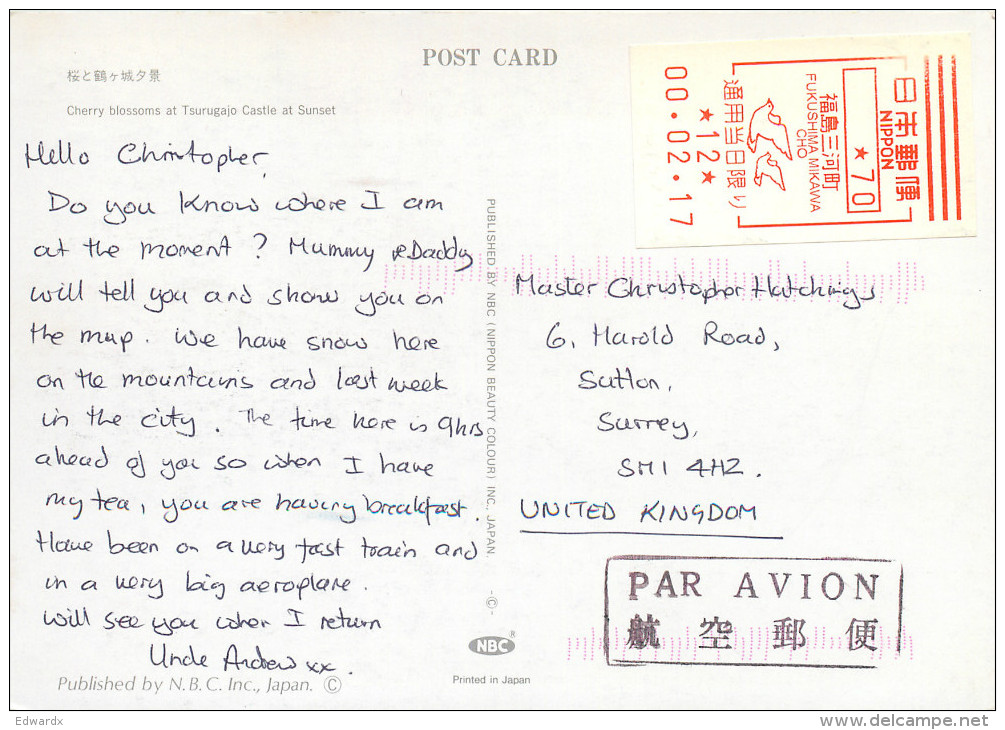 POST CARD
桜と鶴ヶ城夕景
Cherry blossoms at Tsurugajo Castle at Sunset
Hello Christopher,
Do you know where I am
at the moment? Mummy & Daddy
will tell you and show you on
the map. We have snow here
on the mountains and last week
in the city. The time here is 9hrs
ahead of you so when I have
my tea, you are having breakfast.
Have been on a very fast train and
in a very big aeroplane.
Will see you when I return
Uncle Andrew xx.
Published by N.B.C. Inc., Japan. ©
PUBLISHED BY NBC (NIPPON BEAUTY COLOUR) INC., JAPAN. -©-
NBC®
Printed in Japan
日本郵便
NIPPON
★70
福島三河町
FUKUSHIMA MIKAWA
CHO
通用当日限り
★12★
00.02.17
Master Christopher Hutchings
6, Harold Road,
Sutton,
Surrey,
SM1 4HZ.
UNITED KINGDOM
PAR AVION
航空郵便
Edwardx
www.delcampe.net